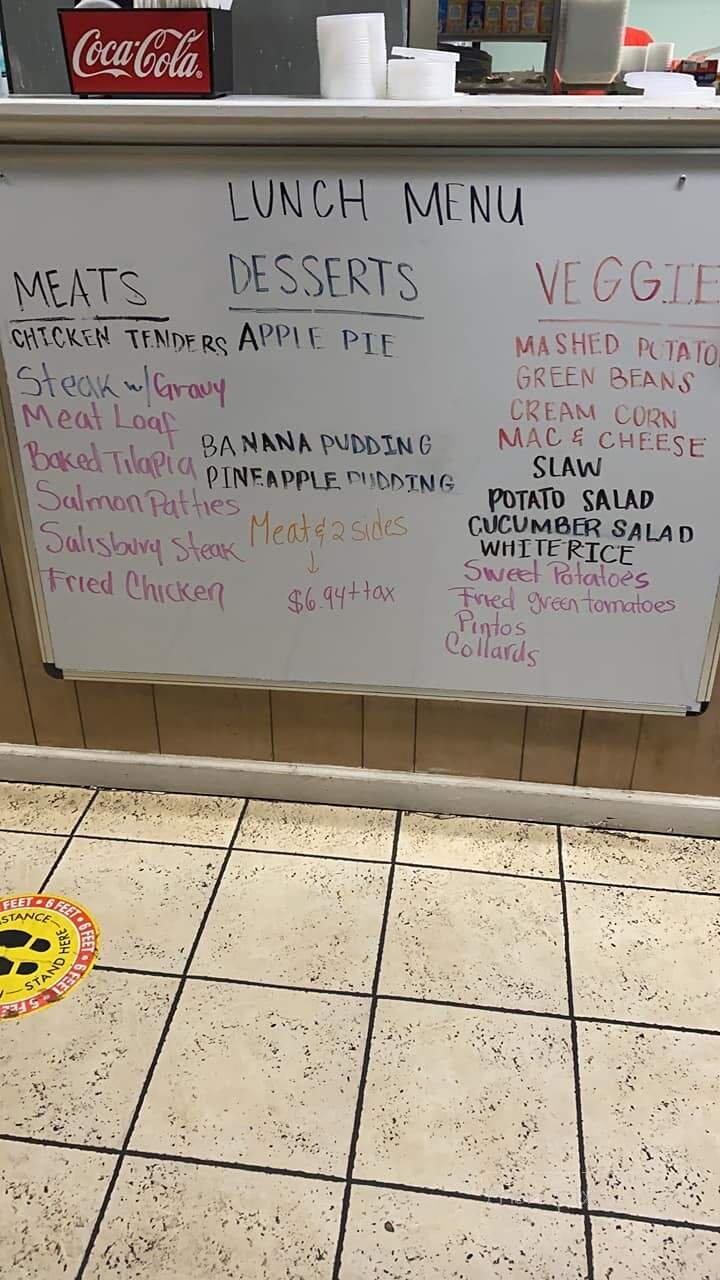 Coca-Cola
LUNCH MENU
MEATS
CHICKEN TENDERS
Steak w/Gravy
Meat Loaf
Baked Tilapia
Salmon Patties
Salisbury Steak
Fried Chicken
DESSERTS
APPLE PIE
BANANA PUDDING
PINEAPPLE PUDDING
Meat & 2 sides
↓
$6.94+tax
VEGGIE
MASHED POTATO
GREEN BEANS
CREAM CORN
MAC & CHEESE
SLAW
POTATO SALAD
CUCUMBER SALAD
WHITE RICE
Sweet Potatoes
Fried green tomatoes
Pintos
Collards
FEET • 6 FEET • 6 FEET • 6 FEET
STANCE
STAND HERE